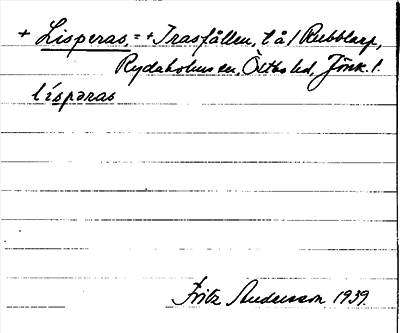 + Lisperas = + Trasfållen, t å / Rubbtarp,
Rydaholms sn, Östbo hd, Jönk. l.
líspəras
Fritz Andersson 1939.